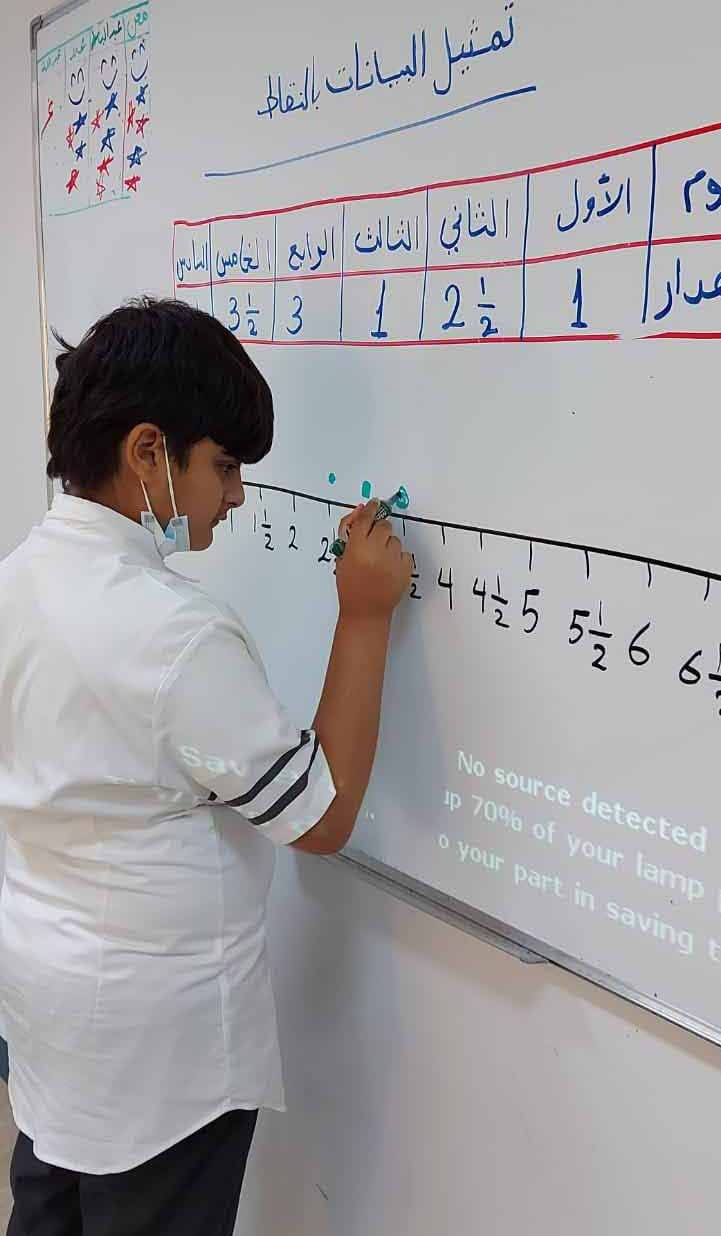 معن عبدالله
تمثيل البيانات بالنقاط
الأول الثاني الثالث الرابع الخامس السادس
1 2 1/2 1 3 3 1/2
1 1/2 2 4 4 1/2 5 5 1/2 6 6
No source detected
up 70% of your lamp
o your part in saving t